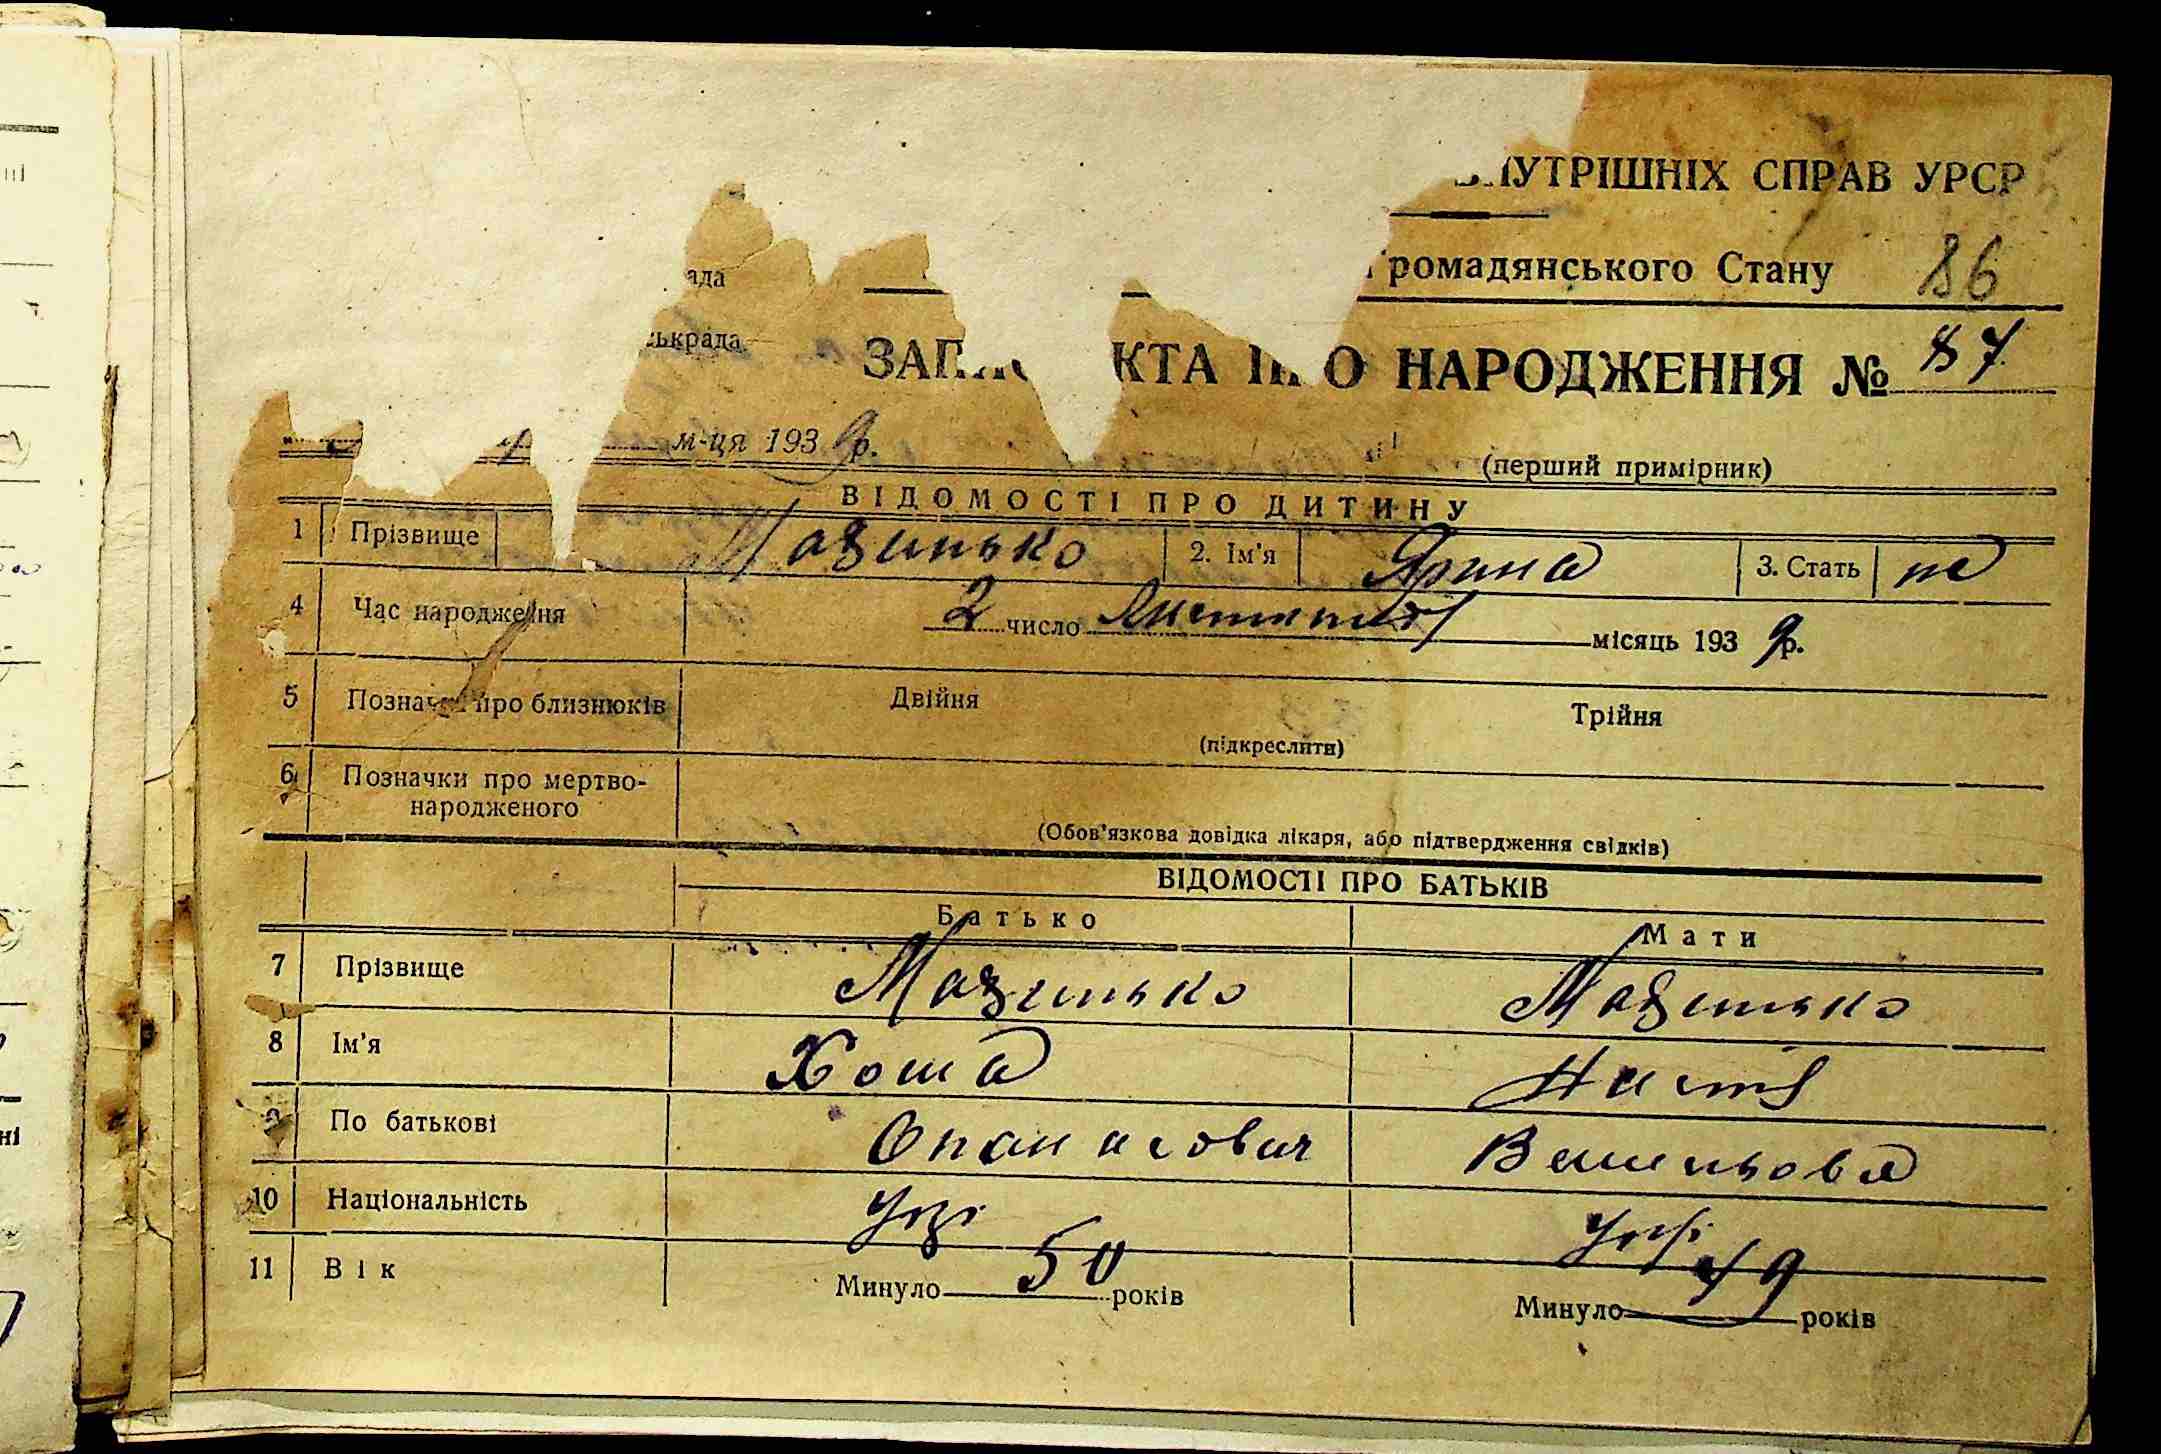 ВНУТРІШНІХ СПРАВ УРСР
ада
Громадянського Стану 86
ськрада
ЗАПИС АКТА ПРО НАРОДЖЕННЯ № 87
м-ця 1939 р.
(перший примірник)
ВІДОМОСТІ ПРО ДИТИНУ
1 Прізвище Мазинько 2. Ім'я Ярина 3. Стать ж
4 Час народження 2 число Листопад місяць 1939 р.
5 Позначки про близнюків Двійня Трійня
(підкреслити)
6 Позначки про мертво-
народженого
(Обов'язкова довідка лікаря, або підтвердження свідків)
ВІДОМОСТІ ПРО БАТЬКІВ
Батько Мати
7 Прізвище Мазинько Мазинько
8 Ім'я Хома Настя
9 По батькові Опанасович
10 Національність Укр Укр
11 Вік Минуло 50 років Минуло 49 років